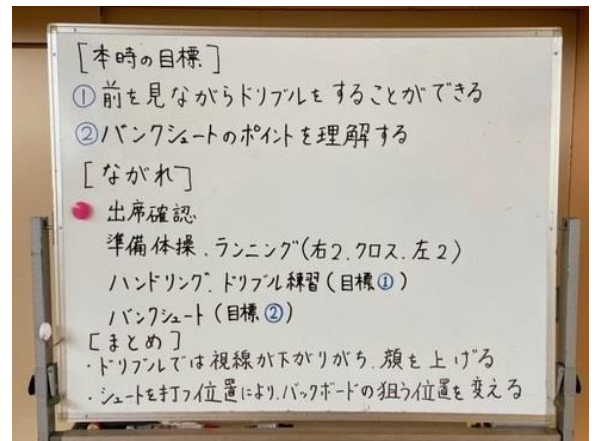 [本時の目標]
①前を見ながらドリブルをすることができる
②バンクシュートのポイントを理解する
[ながれ]
出席確認
準備体操、ランニング(右2、クロス、左2)
ハンドリング、ドリブル練習(目標①)
バンクシュート(目標②)
[まとめ]
・ドリブルでは視線が下がりがち、顔を上げる
・シュートを打つ位置により、バックボードの狙う位置を変える